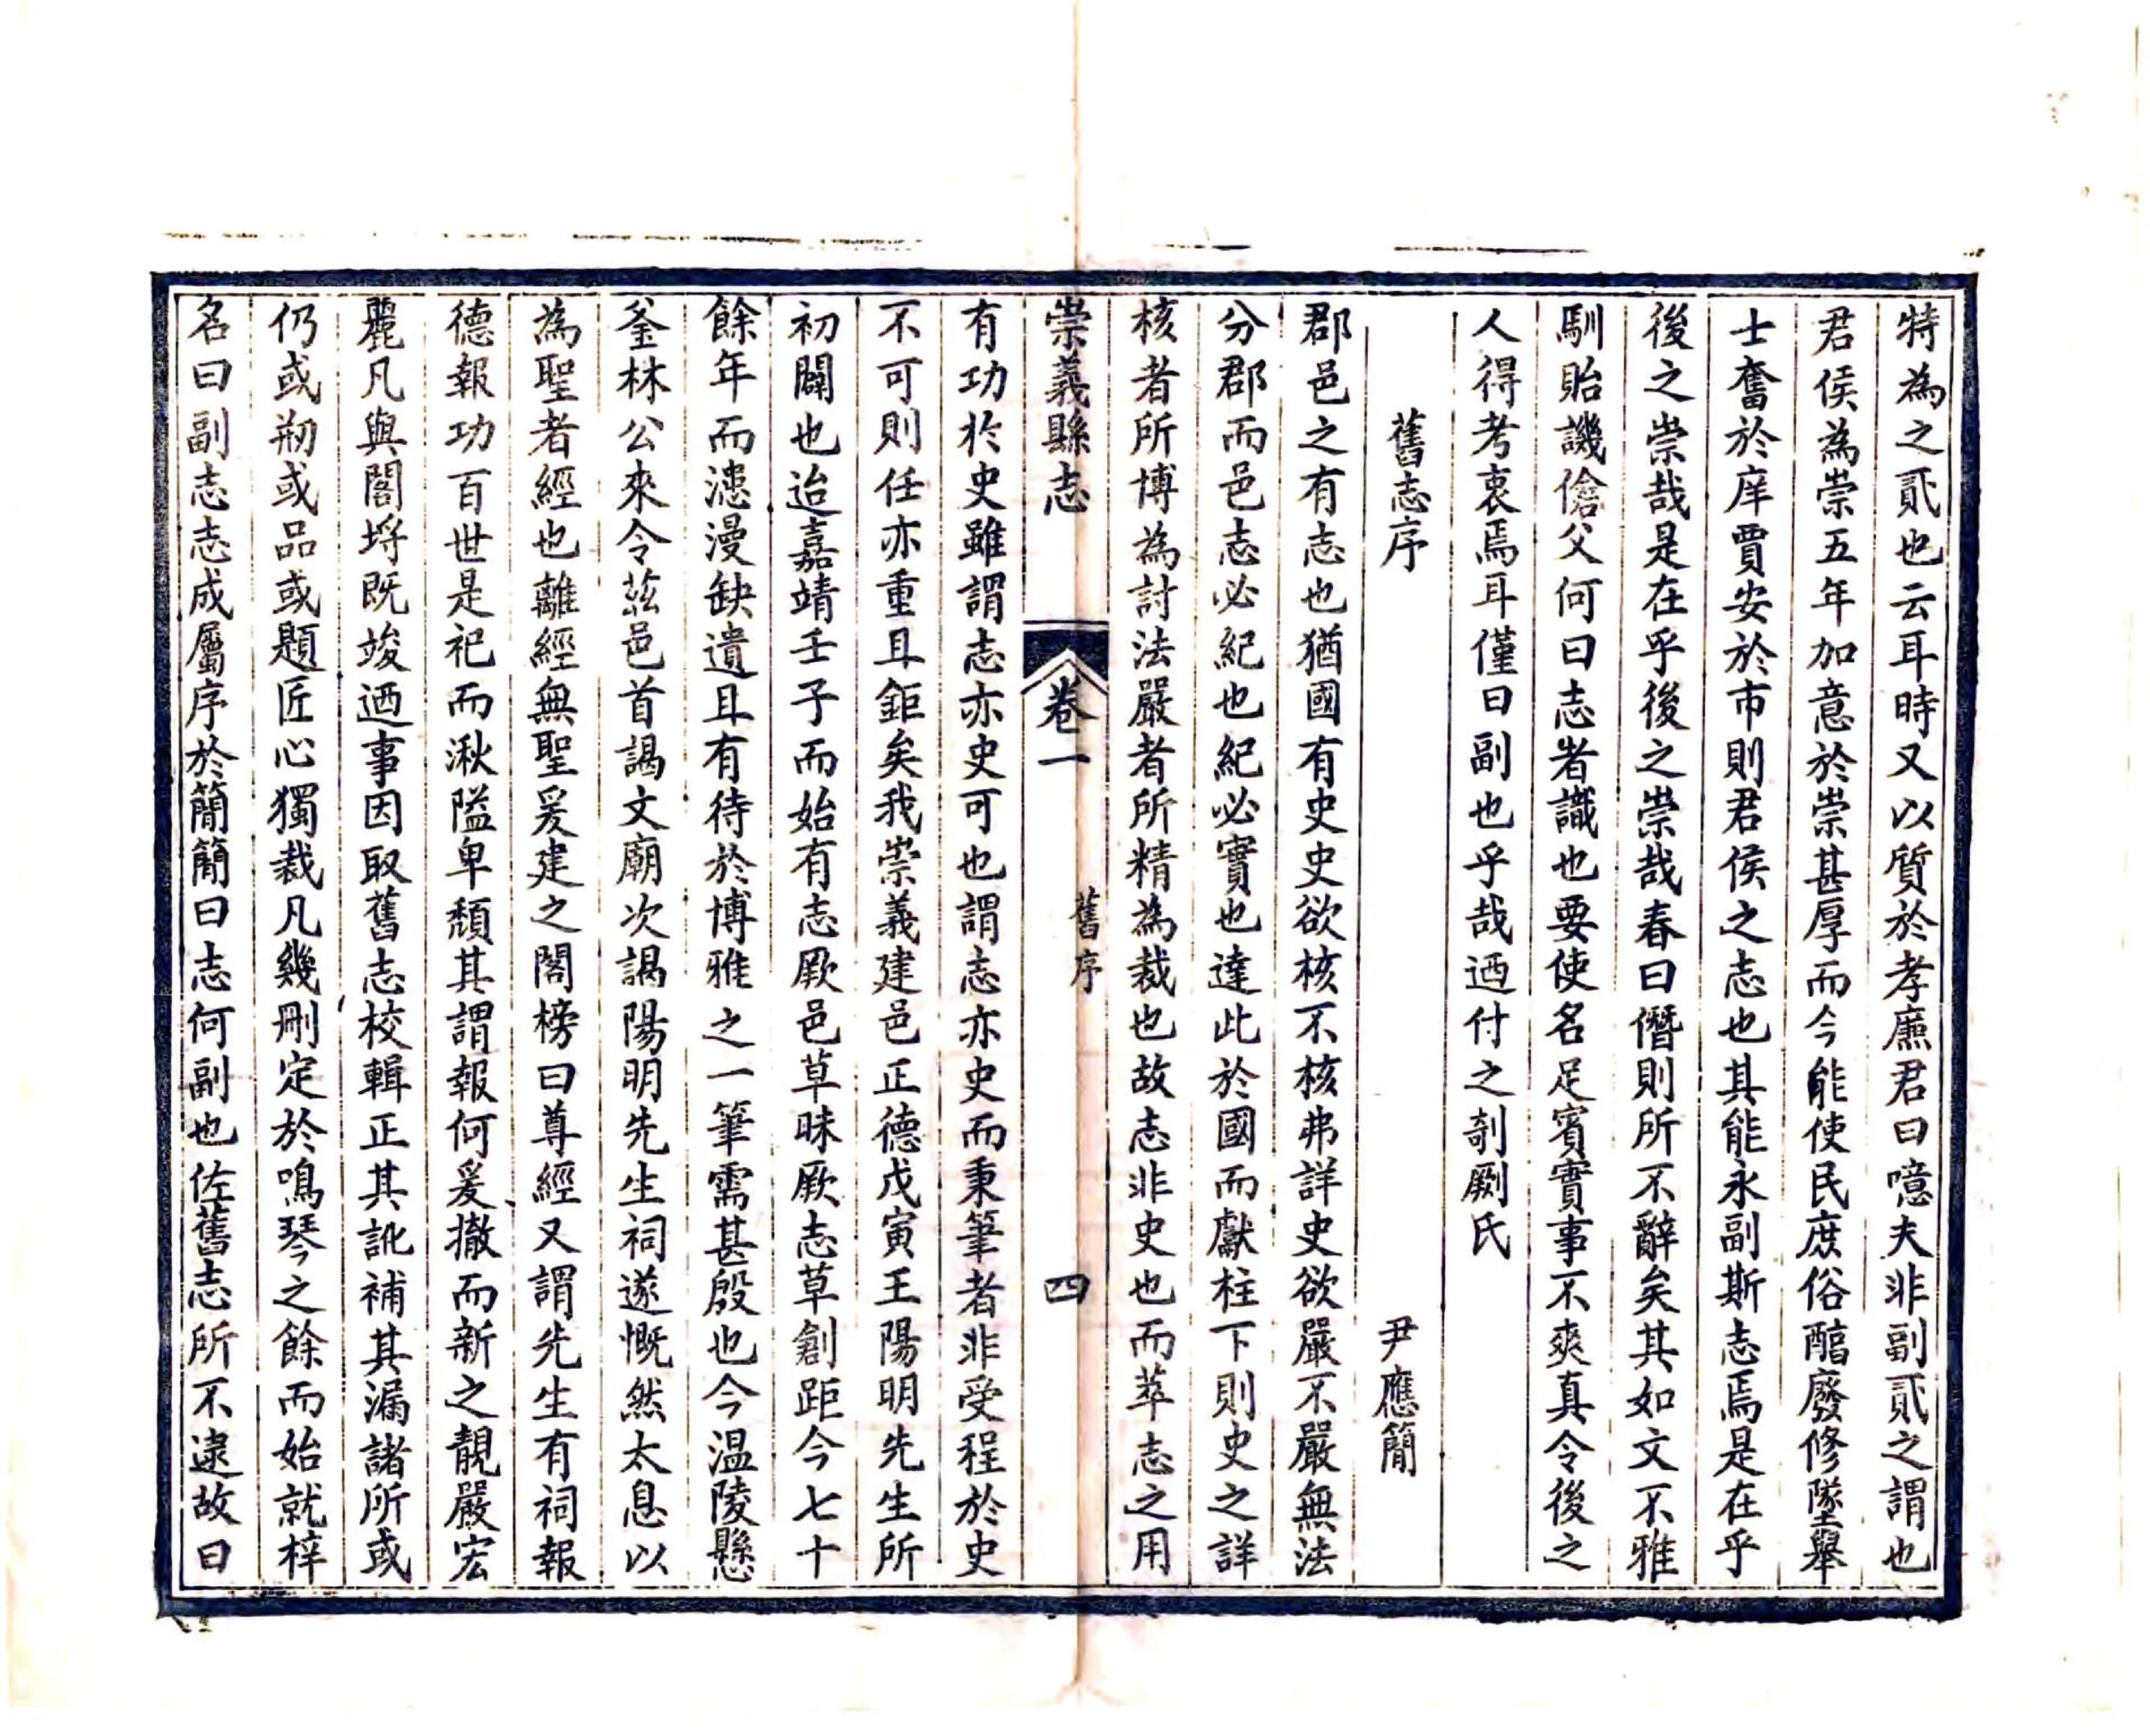 特為之貳也云耳時又以質於孝廉君曰噫夫非副貳之謂也
君侯為崇五年加意於崇甚厚而今能使民庶俗醇廢修墜舉
士奮於庠賈安於市則君侯之志也其能永副斯志焉是在乎
後之崇哉是在乎後之崇哉春曰僭則所不辭矣其如文不雅
馴貽譏傖父何曰志者識也要使名足賓實事不爽真令後之
人得考衷焉耳僅曰副也乎哉迺付之剞劂氏
舊志序 尹應簡
郡邑之有志也猶國有史史欲核不核弗詳史欲嚴不嚴無法
分郡而邑志必紀也紀必實也達此於國而獻柱下則史之詳
核者所博為討法嚴者所精為裁也故志非史也而萃志之用
崇義縣志 卷一 舊序 四
有功於史雖謂志亦史可也謂志亦史而秉筆者非受程於史
不可則任亦重且鉅矣我崇義建邑正德戊寅王陽明先生所
初闢也迨嘉靖壬子而始有志厥邑草昧厥志草創距今七十
餘年而漶漫缺遺且有待於博雅之一筆需甚殷也今温陵懸
釜林公來令茲邑首謁文廟次謁陽明先生祠遂慨然太息以
為聖者經也離經無聖爰建之閣榜曰尊經又謂先生有祠報
德報功百世是祀而湫隘卑頹其謂報何爰撤而新之靚嚴宏
麗凡與閣埒既竣迺事因取舊志校輯正其訛補其漏諸所或
仍或剏或品或題匠心獨裁凡幾刪定於鳴琴之餘而始就梓
名曰副志志成屬序於簡簡曰志何副也佐舊志所不逮故曰